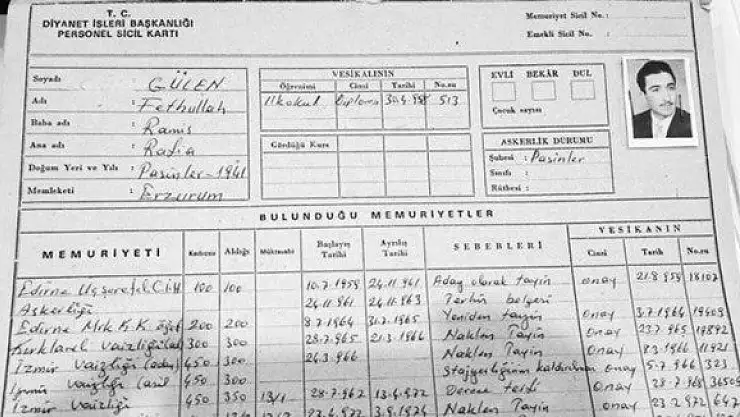 T. C.
DİYANET İŞLERİ BAŞKANLIĞI
PERSONEL SİCİL KARTI
Memuriyet Sicil No.:
Emekli Sicil No. :
Soyadı : GÜLEN
Adı : Fethullah
Baba adı : Ramis
Ana adı : Rafia
Doğum Yeri ve Yılı : Pasinler-1941
Memleketi : Erzurum
VESİKALININ
Öğrenimi Cinsi Tarihi No.su
İlkokul Diploma 513
Gördüğü Kurs
EVLİ BEKÂR DUL
Çocuk sayısı
ASKERLİK DURUMU
Şubesi : Pasinler
Sınıfı :
Rütbesi :
BULUNDUĞU MEMURİYETLER
MEMURİYETİ Kadrosu Aldığı Mükteseb Başlayış Tarihi Ayrılış Tarihi SEBEBLERİ VESİKANIN
Cinsi Tarih No.su
Edirne Üçşerefeli C. 100 100 10.7.1959 24.11.961 Aday olarak tayin onay 21.8.959 18107
Askerliği 24.11.961 24.11.963 Terhis belgesi
Edirne Mrk K.K. 200 200 8.7.1964 31.7.1965 Yeniden tayin onay 3.7.1964 19409
Kırklareli Vaizliği 300 300 28.7.965 21.3.1966 Naklen Tayin onay 23.7.965 19892
İzmir vaizliği (aday) 450 300 24.3.966 Naklen Tayin onay 8.3.1966 11921
İzmir vaizliği (asil) 450 300 Stajyerliğinin kaldırılması onay 5.7.966 323
İzmir vaizliği 450 350 13/1 28.7.967 13.4.1972 Derece terfi onay 28.7.968
Naklen Tayin onay 23.2.972